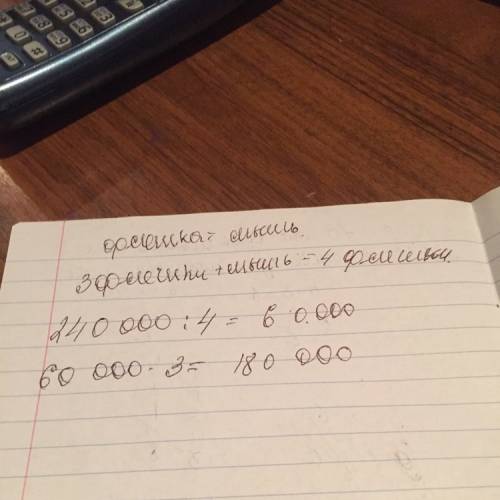 флешка = мышь.
3 флешки + мышь = 4 флешки.
240 000 : 4 = 60.000
60 000 · 3 = 180 000